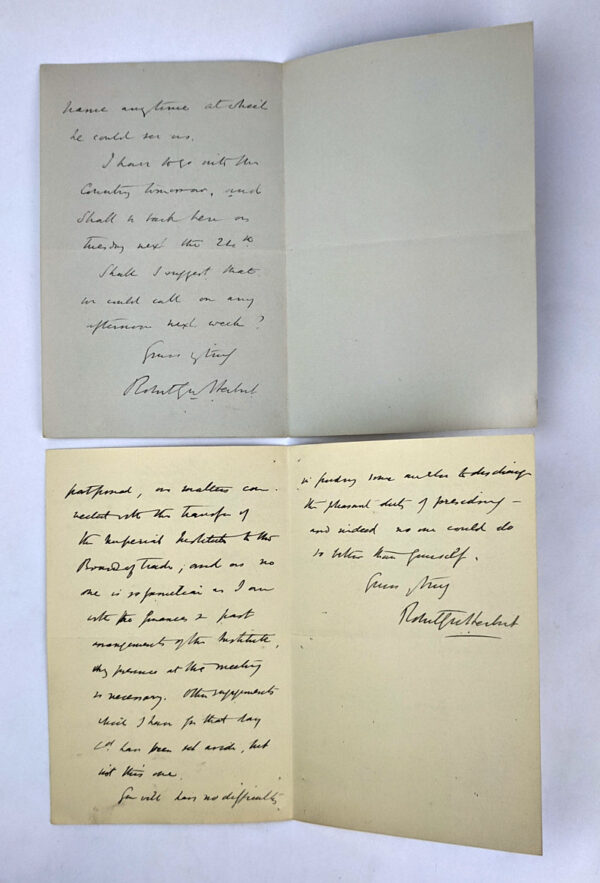 name any time at which
he could see us.
I have to go into the
Country tomorrow, and
shall be back here on
Tuesday next the 24th
Shall I suggest that
we could call on any
afternoon next week?
Yours very truly
Robert G W Herbert
postponed, on matters con-
nected with the transfer of
the Imperial Institute to the
Board of Trade; and as no
one is so familiar as I am
with the finances & past
arrangements of the Institute,
my presence at the meeting
is necessary. Other engagements
which I have for that day
cd have been set aside, but
not this one.
You will have no difficulty
in finding some one else to discharge
the pleasant duty of presiding –
and indeed no one could do
so better than yourself.
Yours very truly
Robert G W Herbert